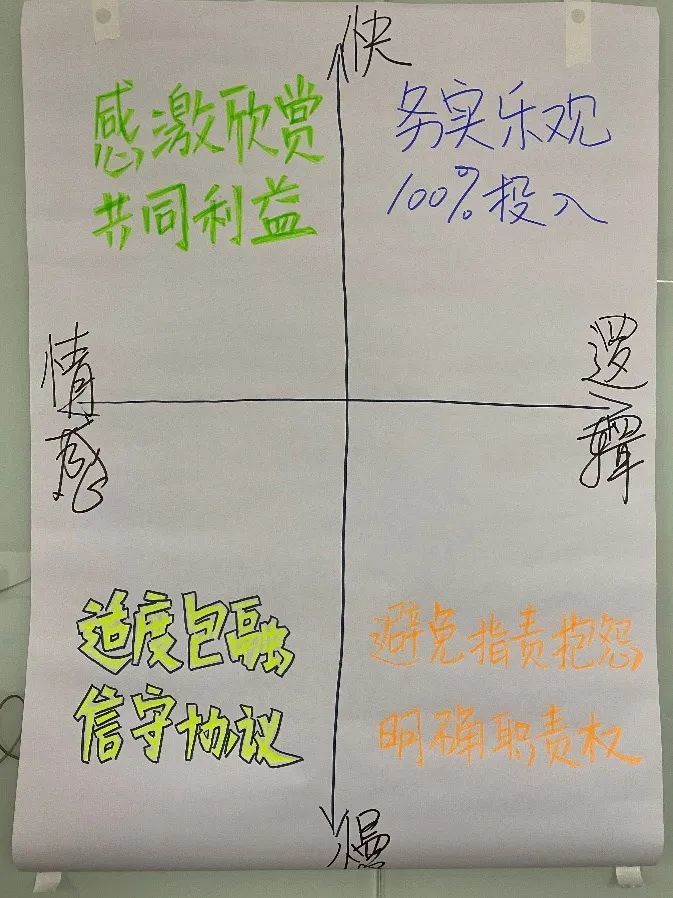 快
感激欣赏
共同利益
务实乐观
100%投入
情感
逻辑
适度包融
信守协议
避免指责抱怨
明确职责权
慢